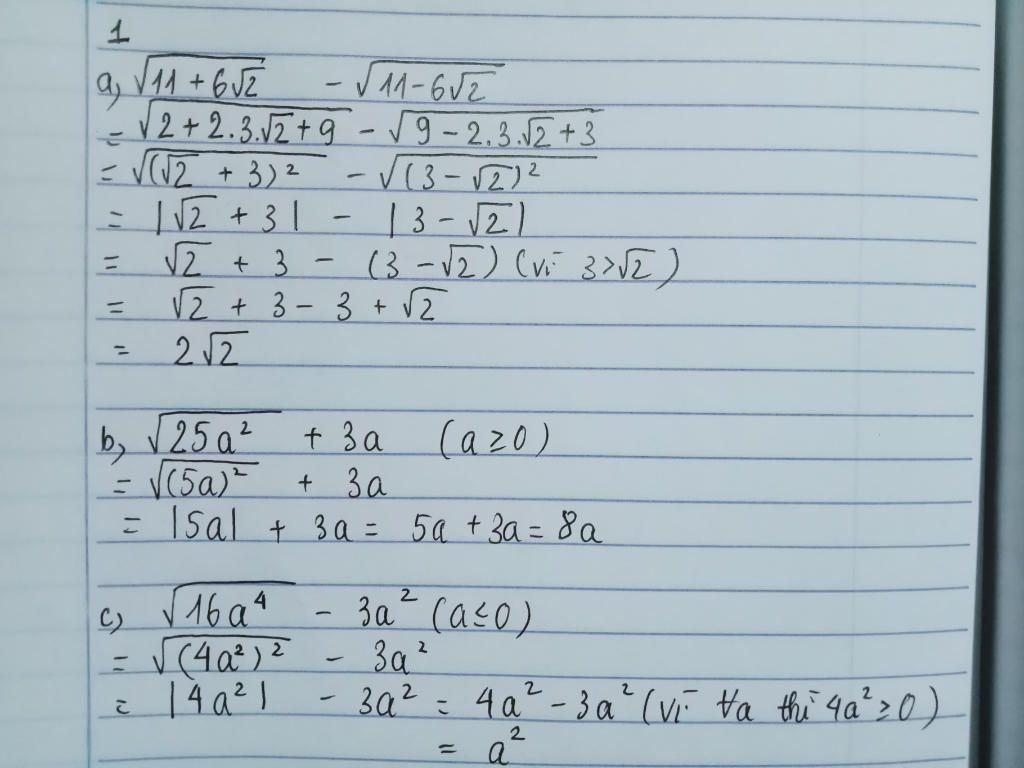 1
a, √(11 + 6√2) - √(11 - 6√2)
= √(2 + 2.3.√2 + 9) - √(9 - 2.3.√2 + 3)
= √((√2 + 3)²) - √((3 - √2)²)
= |√2 + 3| - |3 - √2|
= √2 + 3 - (3 - √2) (vì 3 > √2)
= √2 + 3 - 3 + √2
= 2√2
b, √(25a²) + 3a (a ≥ 0)
= √((5a)²) + 3a
= |5a| + 3a = 5a + 3a = 8a
c, √(16a⁴) - 3a² (a ≤ 0)
= √((4a²)²) - 3a²
= |4a²| - 3a² = 4a² - 3a² (vì ∀a thì 4a² ≥ 0)
= a²